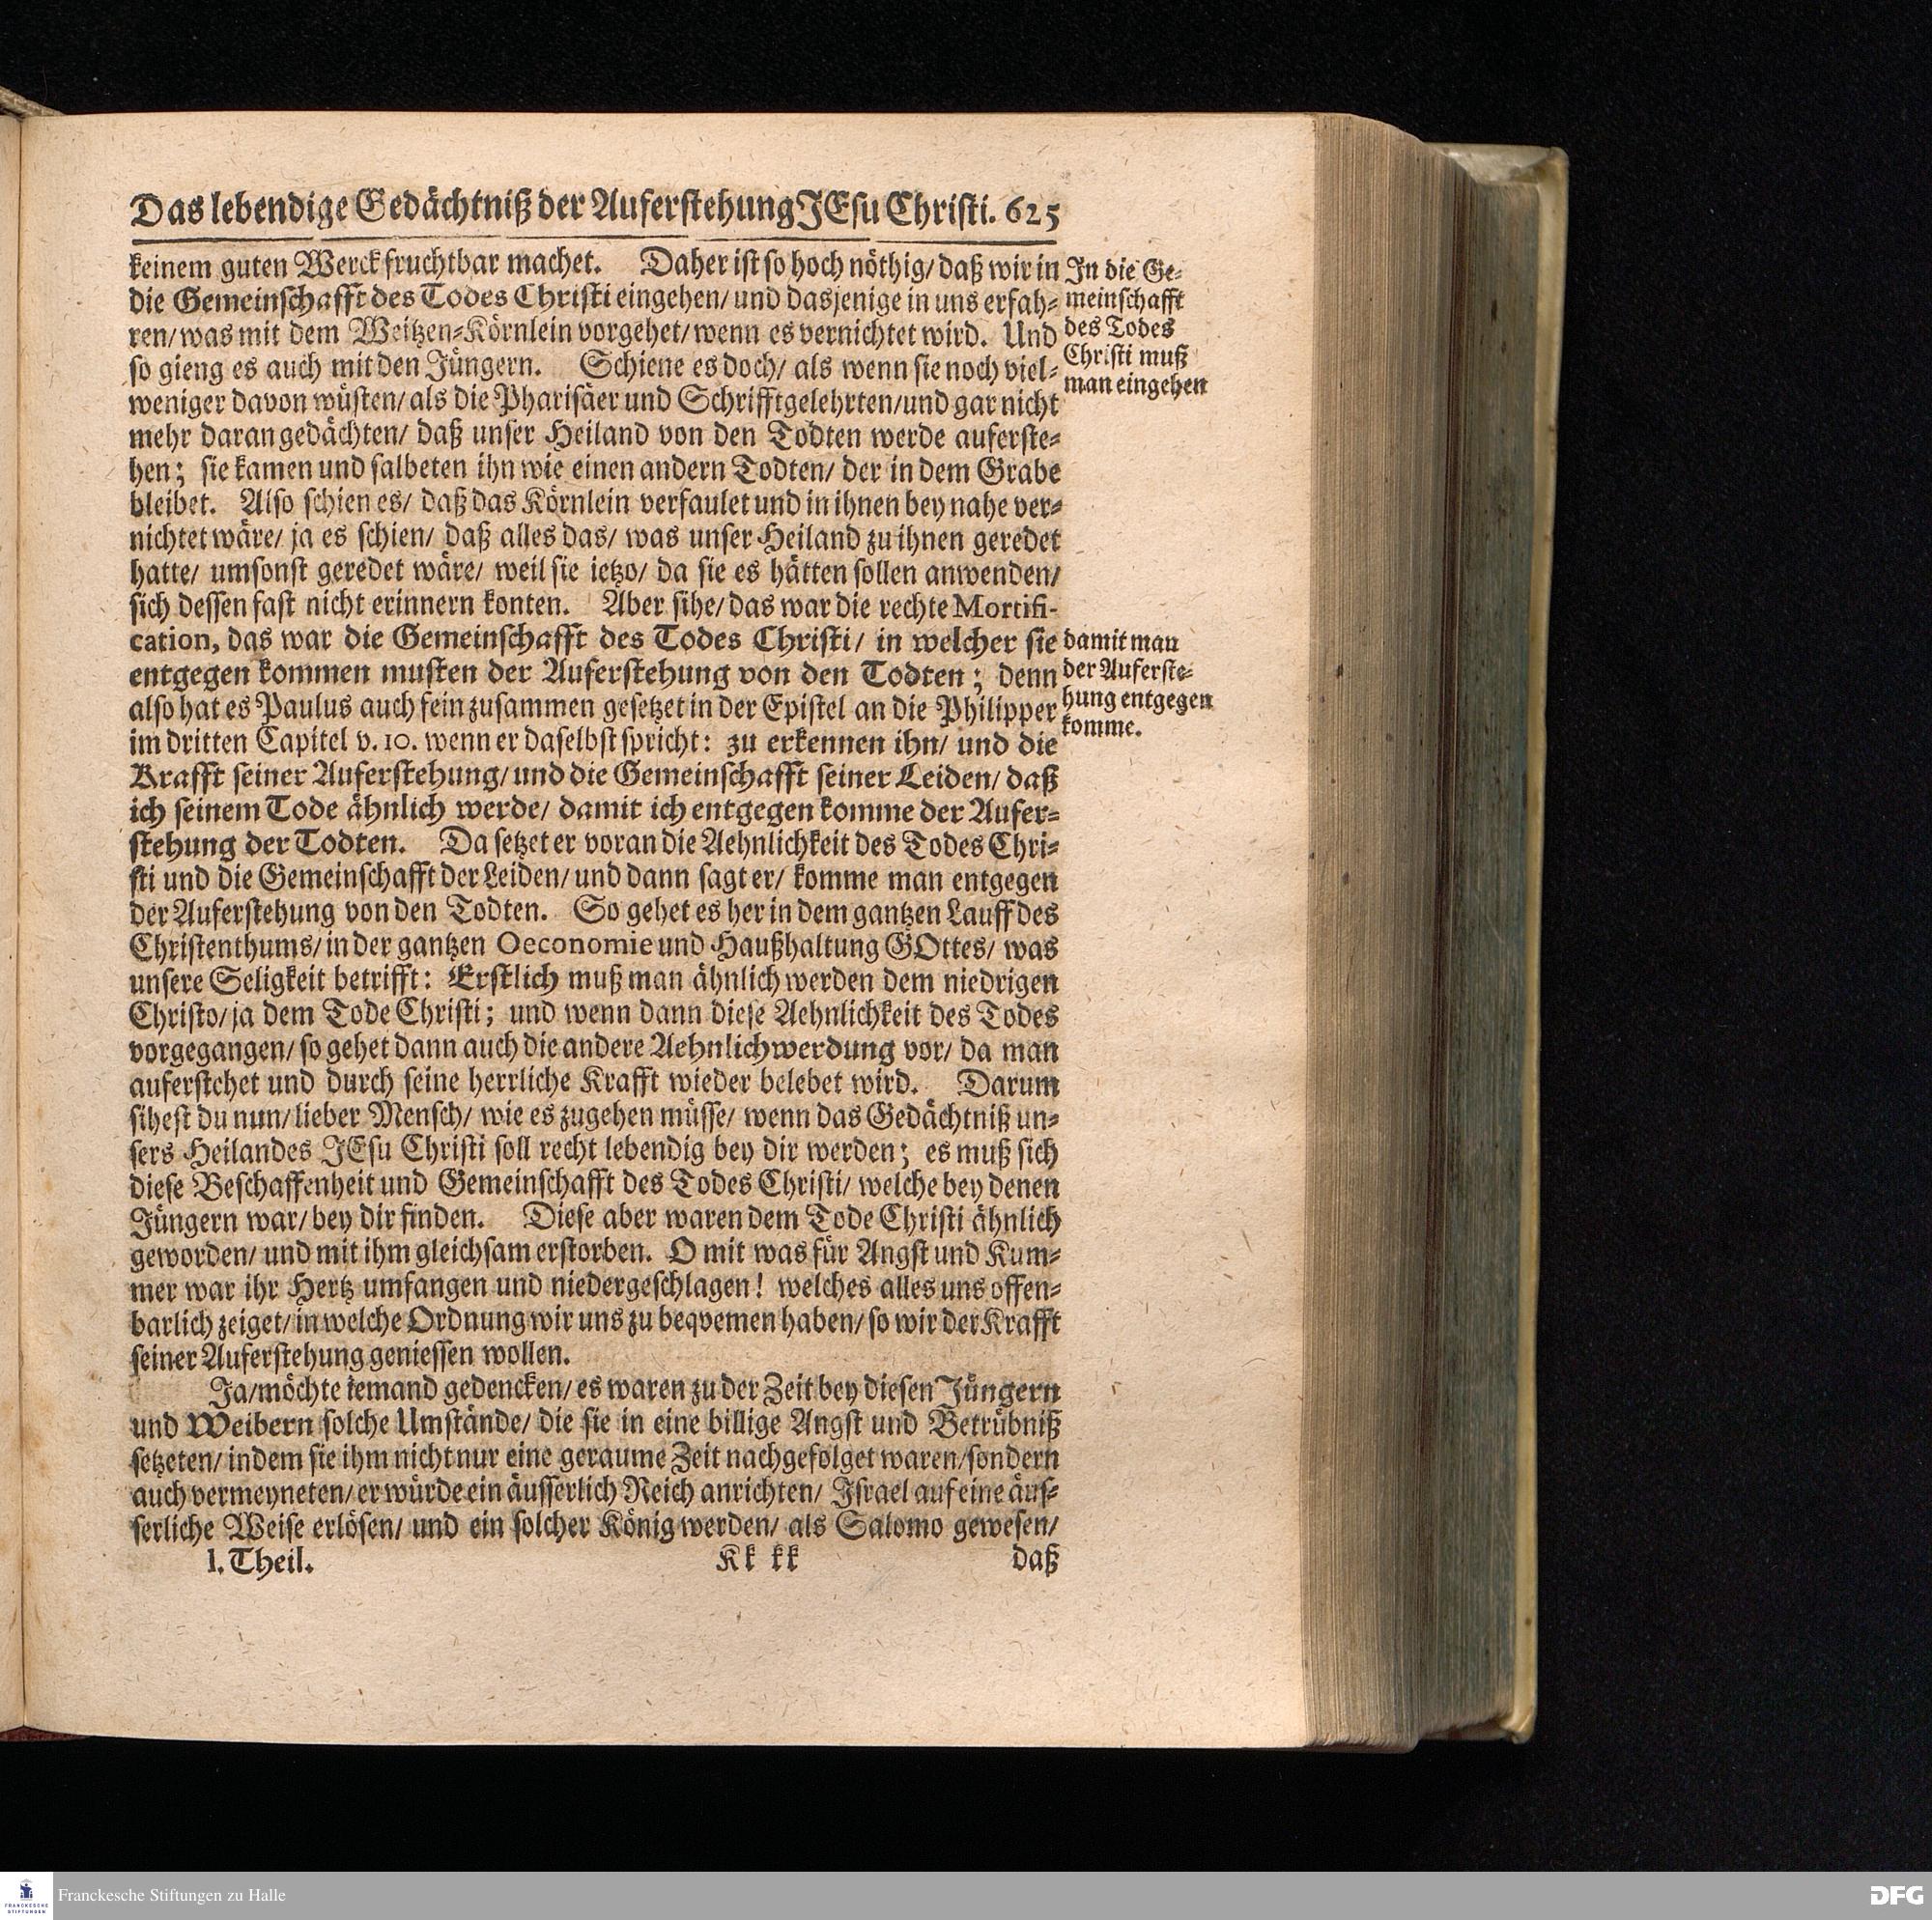 Das lebendige Gedächtniß der Auferstehung JEsu Christi. 625
keinem guten Werck fruchtbar machet. Daher ist so hoch nöthig/ daß wir in
die Gemeinschafft des Todes Christi eingehen/ und dasjenige in uns erfah-
ren/ was mit dem Weitzen-Körnlein vorgehet/ wenn es vernichtet wird. Und
so gieng es auch mit den Jüngern. Schiene es doch/ als wenn sie noch viel-
weniger davon wüsten/ als die Pharisäer und Schrifftgelehrten/ und gar nicht
mehr daran gedächten/ daß unser Heiland von den Todten werde auferste-
hen; sie kamen und salbeten ihn wie einen andern Todten/ der in dem Grabe
bleibet. Also schien es/ daß das Körnlein verfaulet und in ihnen bey nahe ver-
nichtet wäre/ ja es schien/ daß alles das/ was unser Heiland zu ihnen geredet
hatte/ umsonst geredet wäre/ weil sie ietzo/ da sie es hätten sollen anwenden/
sich dessen fast nicht erinnern konten. Aber sihe/ das war die rechte Mortifi-
cation, das war die Gemeinschafft des Todes Christi/ in welcher sie
entgegen kommen musten der Auferstehung von den Todten; denn
also hat es Paulus auch fein zusammen gesetzet in der Epistel an die Philipper
im dritten Capitel v. 10. wenn er daselbst spricht: zu erkennen ihn/ und die
Krafft seiner Auferstehung/ und die Gemeinschafft seiner Leiden/ daß
ich seinem Tode ähnlich werde/ damit ich entgegen komme der Aufer-
stehung der Todten. Da setzet er voran die Aehnlichkeit des Todes Chri-
sti und die Gemeinschafft der Leiden/ und dann sagt er/ komme man entgegen
der Auferstehung von den Todten. So gehet es her in dem gantzen Lauff des
Christenthums/ in der gantzen Oeconomie und Haußhaltung GOttes/ was
unsere Seligkeit betrifft: Erstlich muß man ähnlich werden dem niedrigen
Christo/ ja dem Tode Christi; und wenn dann diese Aehnlichkeit des Todes
vorgegangen/ so gehet dann auch die andere Aehnlichwerdung vor/ da man
auferstehet und durch seine herrliche Krafft wieder belebet wird. Darum
sihest du nun/ lieber Mensch/ wie es zugehen müsse/ wenn das Gedächtniß un-
sers Heilandes JEsu Christi soll recht lebendig bey dir werden; es muß sich
diese Beschaffenheit und Gemeinschafft des Todes Christi/ welche bey denen
Jüngern war/ bey dir finden. Diese aber waren dem Tode Christi ähnlich
geworden/ und mit ihm gleichsam erstorben. O mit was für Angst und Kum-
mer war ihr Hertz umfangen und niedergeschlagen! welches alles uns offen-
barlich zeiget/ in welche Ordnung wir uns zu beqvemen haben/ so wir der Krafft
seiner Auferstehung geniessen wollen.
Ja/ möchte iemand gedencken/ es waren zu der Zeit bey diesen Jüngern
und Weibern solche Umstände/ die sie in eine billige Angst und Betrübniß
setzeten/ indem sie ihm nicht nur eine geraume Zeit nachgefolget waren/ sondern
auch vermeyneten/ er würde ein äusserlich Reich anrichten/ Israel auf eine äus-
serliche Weise erlösen/ und ein solcher König werden/ als Salomo gewesen/
I. Theil. Kk kk daß
In die Ge-
meinschafft
des Todes
Christi muß
man eingehen
damit man
der Auferste-
hung entgegen
komme.
FRANCKESCHE
STIFTUNGEN
Franckesche Stiftungen zu Halle
DFG